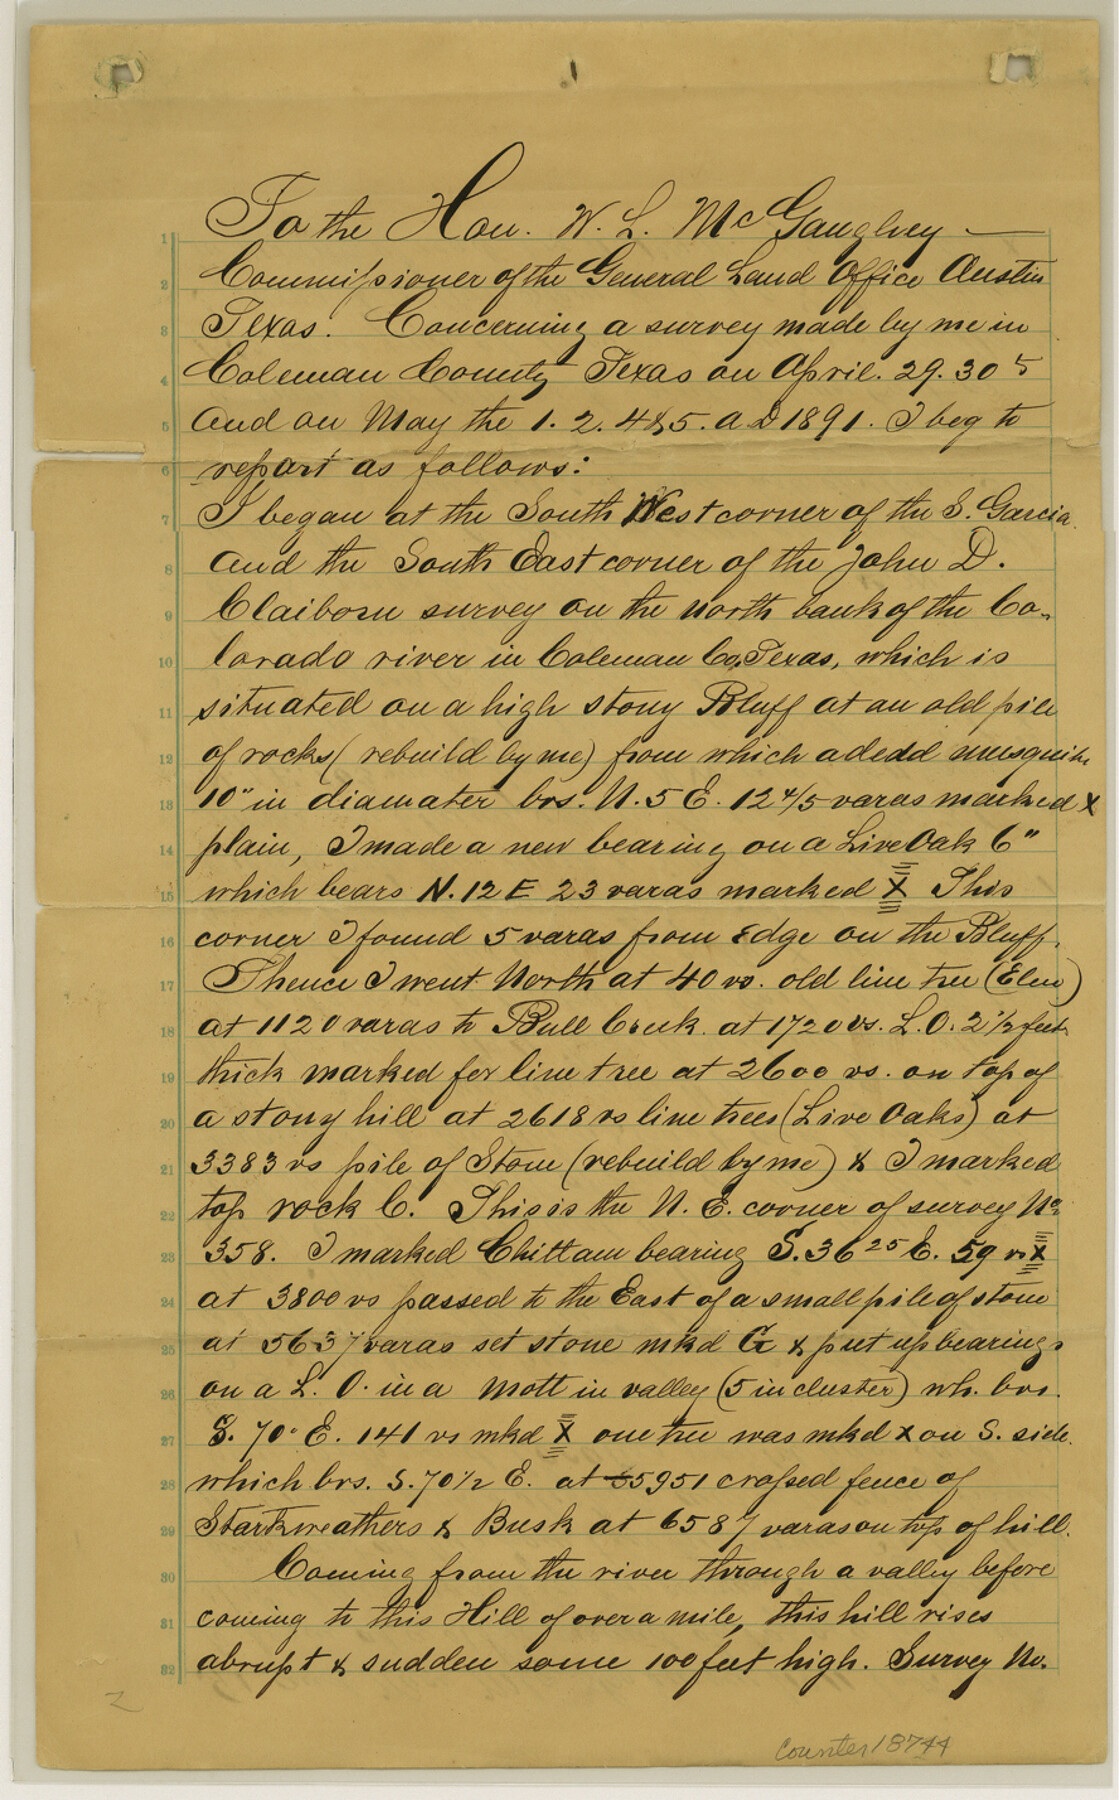 1
To the Hon. W. L. McGaughey —
Commissioner of the General Land Office Austin
Texas. Concerning a survey made by me in
Coleman County Texas on April. 29. 30
and on May the 1. 2. 4 & 5. A D 1891. I beg to
report as follows:
I began at the South West corner of the S. Garcia
and the South East corner of the John D.
Claiborn survey on the north bank of the Co-
lorado river in Coleman Co, Texas, which is
situated on a high stony Bluff at an old pile
of rocks ( rebuild by me) from which a dead musquite
10" in diamater brs. N. 5 E. 12 4/5 varas marked X
plain, I made a new bearing on a Live Oak 6"
which bears N. 12 E 23 varas marked X This
corner I found 5 varas from edge on the Bluff.
Thence I went North at 40 vs. old line tree (Elm)
at 1120 varas to Bull Creek at 1720 vs. L. O. 2 1/2 feet
thick marked for line tree at 2600 vs. on top of
a stony hill at 2618 vs line trees (Live Oaks) at
3383 vs pile of Stone (rebuild by me) & I marked
top rock C. This is the N. E. corner of survey No
358. I marked Chittam bearing S. 36 25 E. 59 vs X
at 3800 vs passed to the East of a small pile of stone
at 5637 varas set stone mkd G & put up bearings
on a L. O. in a mott in valley (5 in cluster) wh. brs.
S. 70° E. 141 vs mkd X one tree was mkd x on S. side.
which brs. S. 70 1/2 E. at 5951 crossed fence of
Starkweathers & Busk at 6587 varas on top of hill.
Coming from the river through a valley before
coming to this Hill of over a mile, this hill rises
abrupt & sudden some 100 feet high. Survey No.
counter 18744